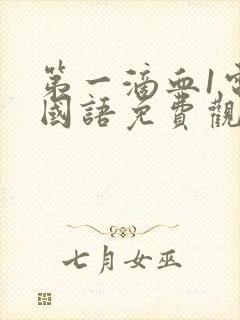 第一滴血1電
國語免費觀
七月女巫